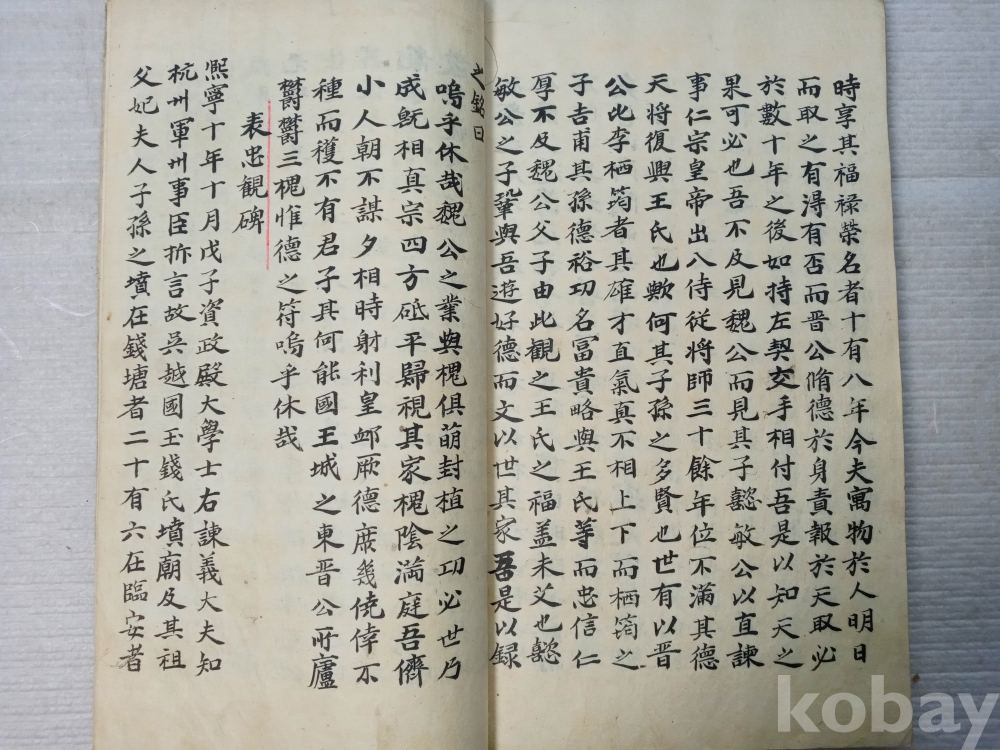 時享其福禄榮名者十有八年今夫寓物於人明日
而取之有淂有否而晋公脩德於身責報於天取必
於數十年之後如持左契交手相付吾是以知天之
果可必也吾不及見魏公而見其子懿敏公以直諫
事仁宗皇帝出八侍従將師三十餘年位不滿其德
天將復興王氏也歟何其子孫之多賢也世有以晋
公比李栖筠者其雄才直氣真不相上下而栖筠之
子吉甫其孫德裕功名冨貴略與王氏等而忠信仁
厚不及魏公父子由此觀之王氏之福盖未艾也懿
敏公之子鞏與吾遊好德而文以世其家吾是以録
之銘曰
嗚乎休哉魏公之業與槐俱萌封植之功必世乃
成旣相真宗四方砥平歸視其家槐陰満庭吾儕
小人朝不謀夕相時射利皇卹厥德庶幾僥倖不
種而穫不有君子其何能國王城之東晋公所廬
欝欝三槐惟德之符嗚乎休哉
表忠観碑
熙寧十年十月戊子資政殿大學士右諫義大夫知
杭州軍州事臣拚言故吳越國玉錢氏墳廟及其祖
父妃夫人子孫之墳在錢塘者二十有六在臨安者
kobay